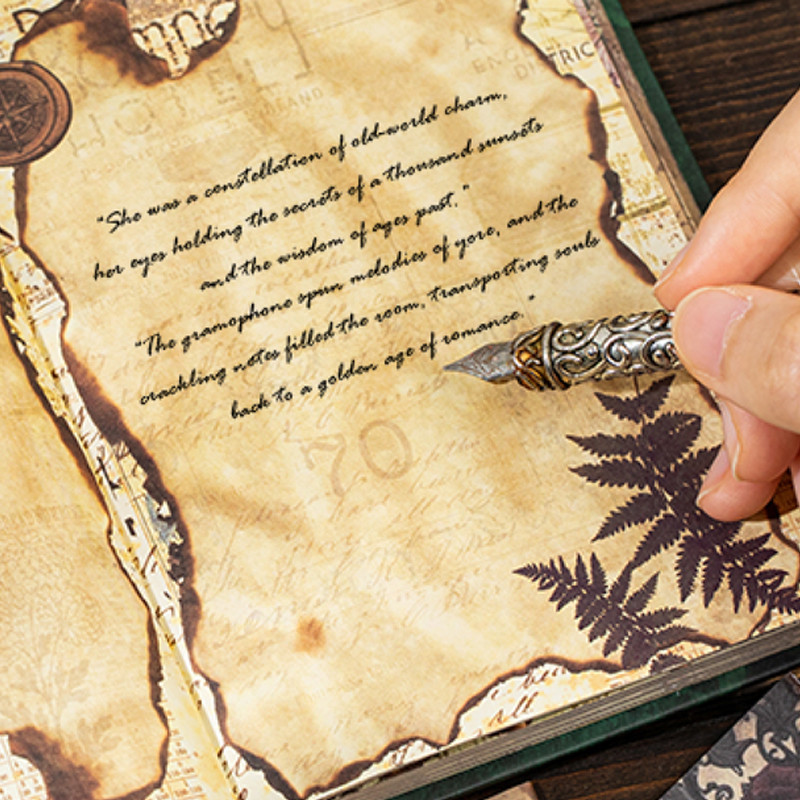 HOTEL
DISTRICT
"She was a constellation of old-world charm,
her eyes holding the secrets of a thousand sunsets
and the wisdom of ages past."
"The gramophone spun melodies of yore, and the
crackling notes filled the room, transporting souls
back to a golden age of romance."
70